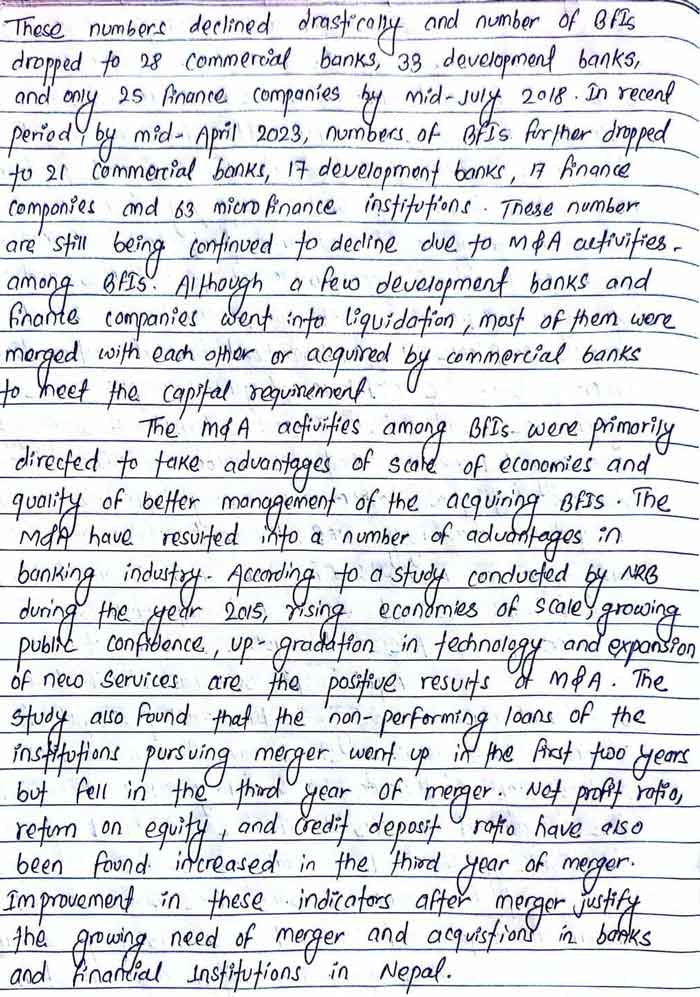 These numbers declined drastically and number of BFIs
dropped to 28 commercial banks, 33 development banks,
and only 25 finance companies by mid-July 2018. In recent
period, by mid-April 2023, numbers of BFIs further dropped
to 21 commercial banks, 17 development banks, 17 finance
companies and 63 microfinance institutions. These number
are still being continued to decline due to M&A activities.
among BFIs. Although a few development banks and
finance companies went into liquidation, most of them were
merged with each other or acquired by commercial banks
to meet the capital requirement.
The M&A activities among BFIs were primarily
directed to take advantages of scale of economies and
quality of better management of the acquiring BFIs. The
M&A have resulted into a number of advantages in
banking industry. According to a study conducted by NRB
during the year 2015, rising economies of scale, growing
public confidence, up-gradation in technology and expansion
of new services are the positive results of M&A. The
study also found that the non-performing loans of the
institutions pursuing merger went up in the first two years
but fell in the third year of merger. Net profit ratio,
return on equity, and credit deposit ratio have also
been found increased in the third year of merger.
Improvement in these indicators after merger justify
the growing need of merger and acquistions in banks
and financial institutions in Nepal.